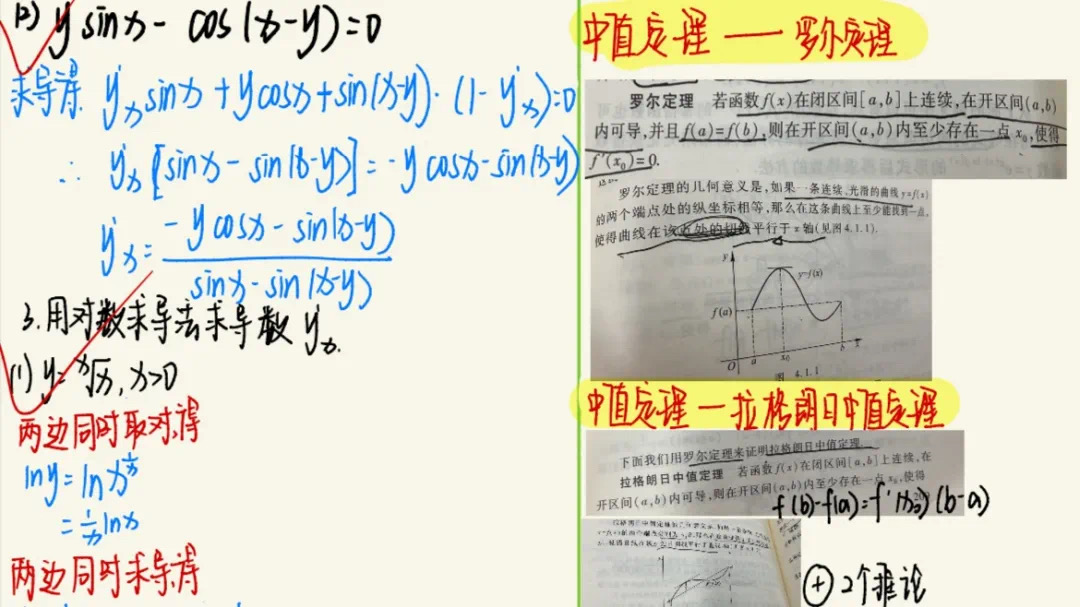 (2) y sinx - cos(x-y)=0
求导得. y'ₓ sinx + ycosx + sin(x-y)·(1-y'ₓ)=0
∴ y'ₓ [sinx - sin(x-y)] = -ycosx - sin(x-y)
y'ₓ = -ycosx - sin(x-y)
sinx - sin(x-y)
3.用对数求导法求导数 y'ₓ.
(1) y= ˣ√x, x>0
两边同时取对,得
lny = lnx^(1/x)
= 1/x lnx
两边同时求导,得
中值定理 — 罗尔定理
罗尔定理 若函数f(x)在闭区间[a,b]上连续,在开区间(a,b)
内可导,并且f(a)=f(b),则在开区间(a,b)内至少存在一点 x₀,使得
f'(x₀)=0.
罗尔定理的几何意义是,如果一条连续、光滑的曲线y=f(x)
的两个端点处的纵坐标相等,那么在这条曲线上至少能找到一点,
使得曲线在该点处的切线平行于x轴(见图4.1.1).
y
y=f(x)
f(a)
O a x₀ b x
图 4.1.1
中值定理 — 拉格朗日中值定理
下面我们用罗尔定理来证明拉格朗日中值定理.
拉格朗日中值定理 若函数f(x)在闭区间[a,b]上连续,在
开区间(a,b)内可导,则在开区间(a,b)内至少存在一点x₀,使得
f(b)-f(a)=f'(x₀)(b-a)
⊕ 2个推论